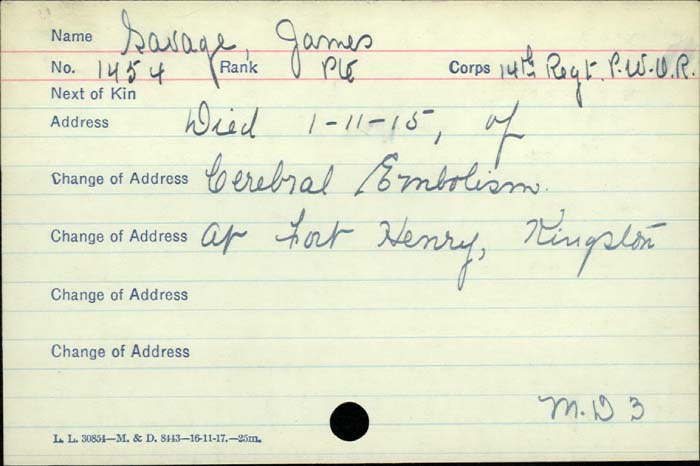 Name Savage, James
No. 1454 Rank Pte Corps 14th Regt. P.W.O.R.
Next of Kin
Address Died 1-11-15, of
Change of Address Cerebral Embolism.
Change of Address At Fort Henry, Kingston
Change of Address
Change of Address
M.D 3
L. L. 30854—M. & D. 8443—16-11-17.—25m.